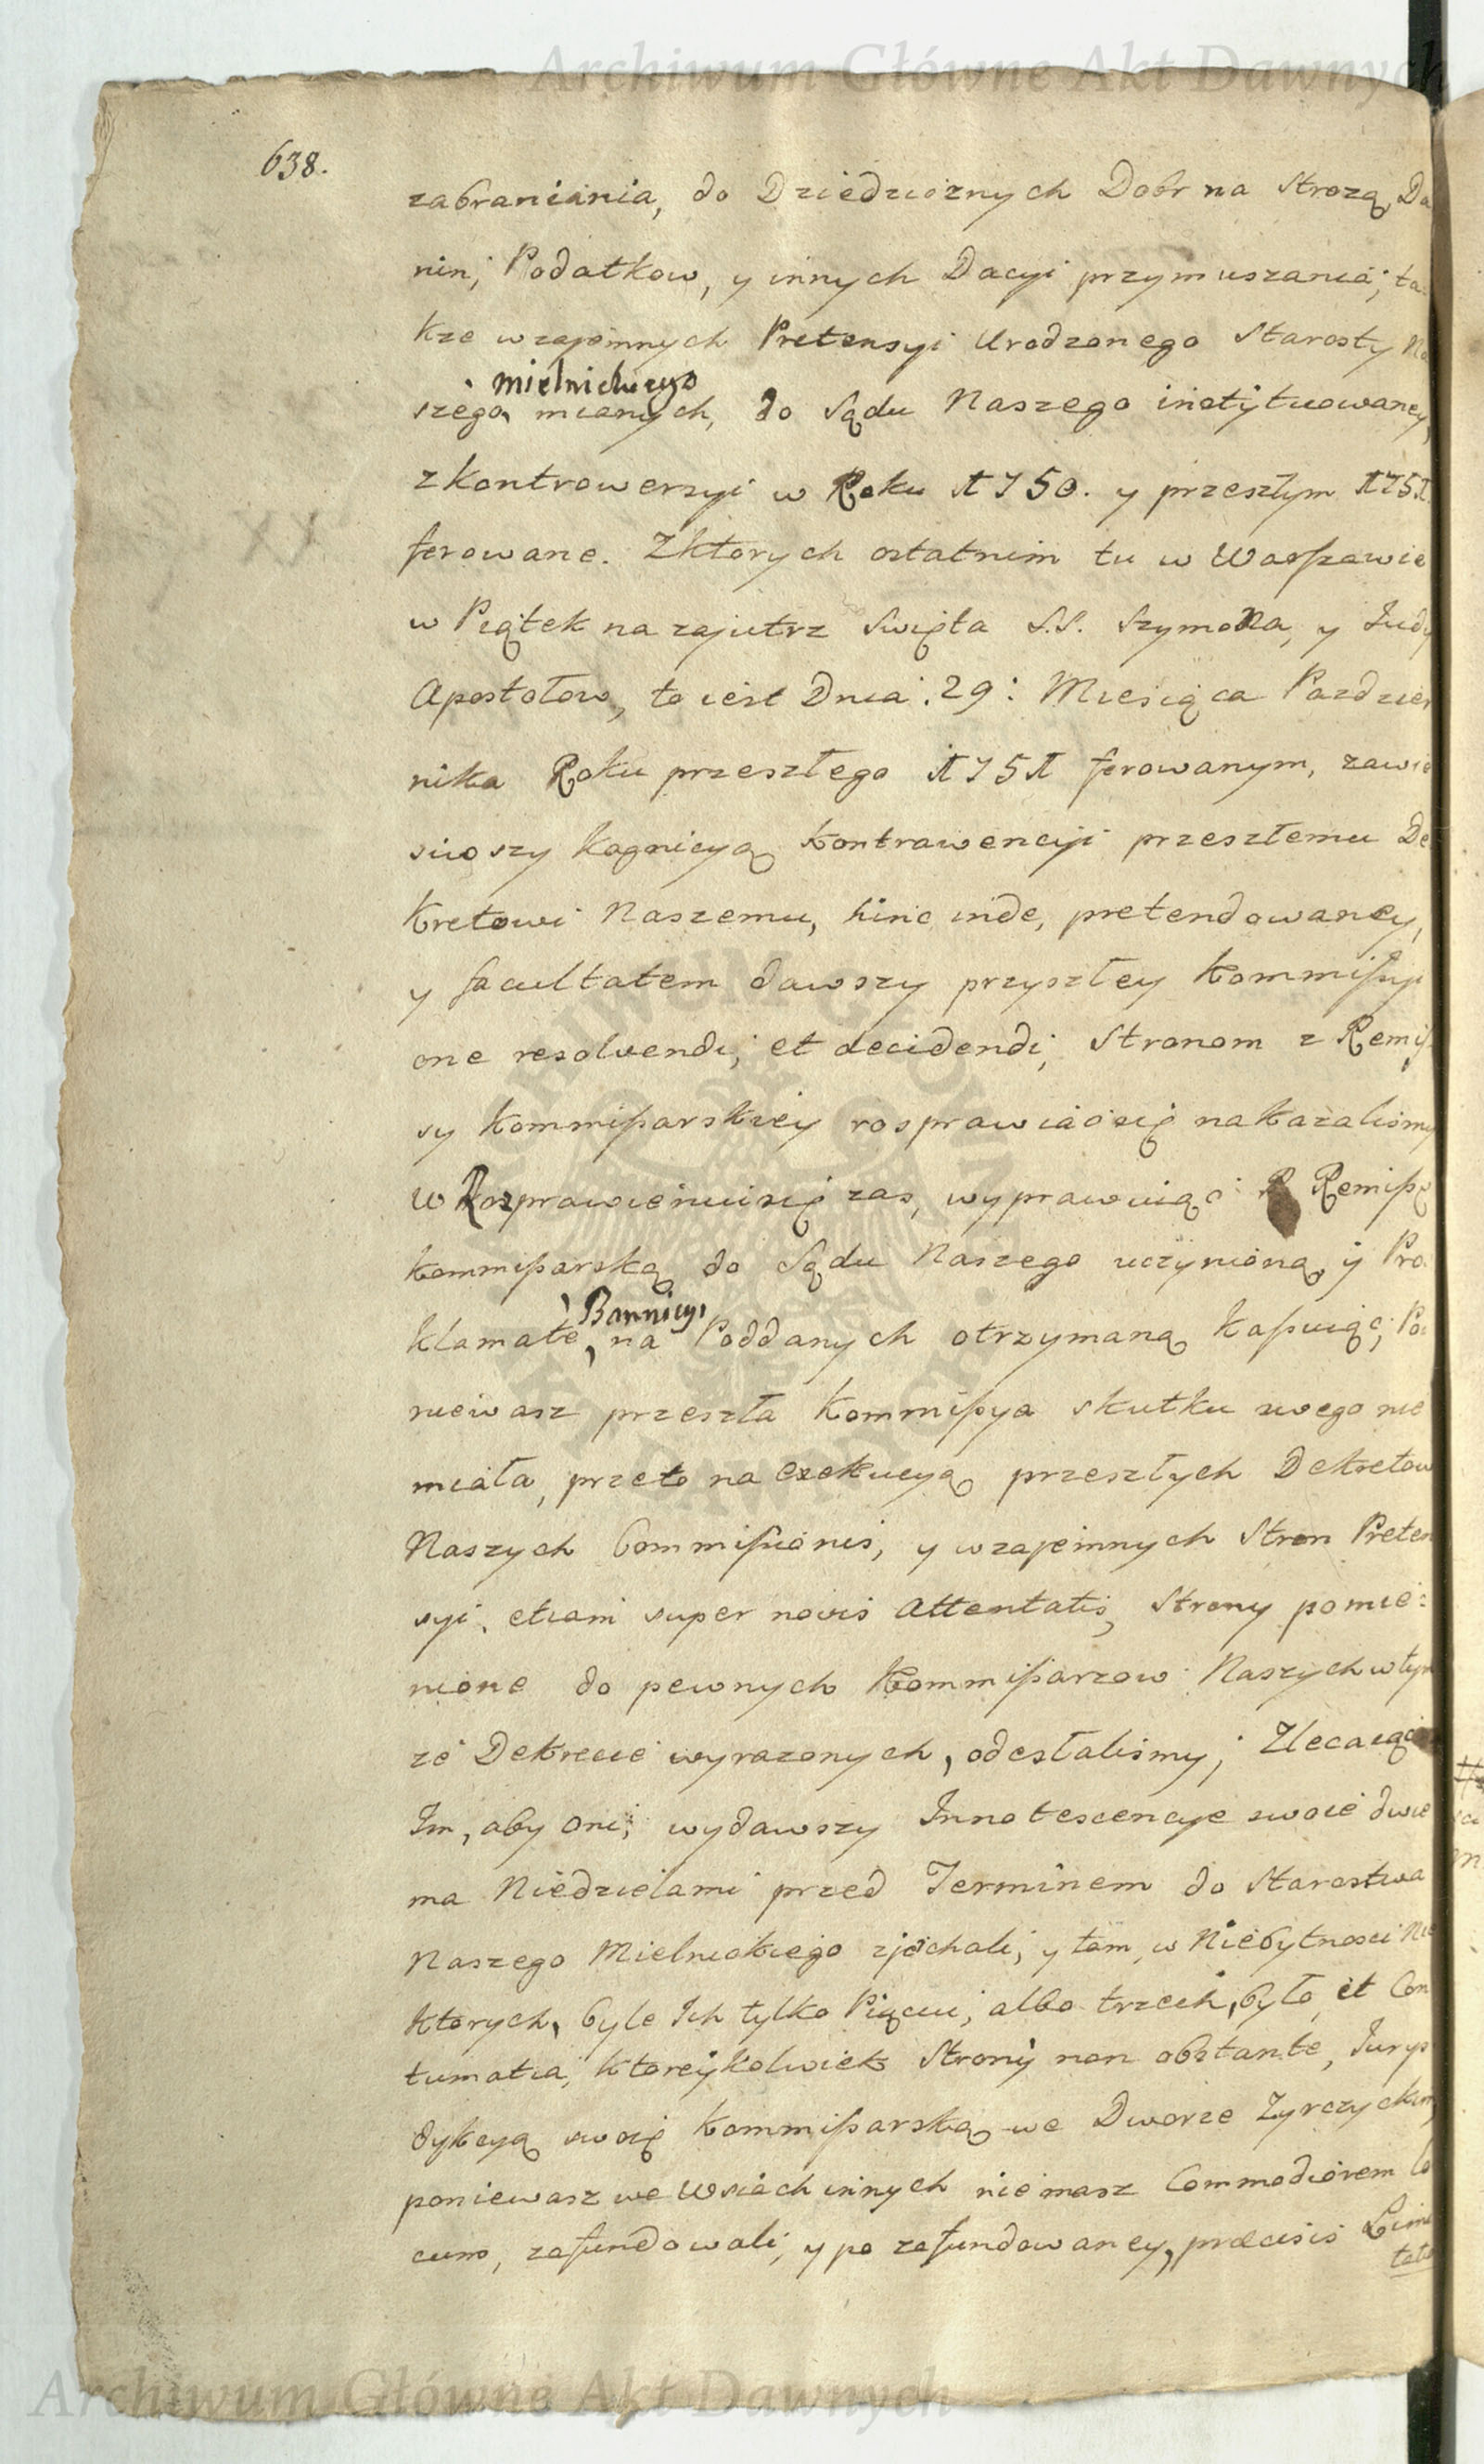 Archiwum Główne Akt Dawnych
638.
zabraniania, do Dziedzicznych Dobr na Strozą, Da
nin, Podatkow, y innych Dacyi przymuszania; ta
kze wzajemnych Pretensyi Urodzonego Starosty Na
Mielnickiego
szego mianych, do Sądu Naszego instytuowaney,
z kontrowersyi w Roku 1750. y przeszłym 1751
ferowane. Z ktorych ostatnim tu w Warszawie
w Piątek nazajutrz Swięta S.S. Szymona, y Judy
Apostołow, to iest Dnia : 29 : Miesiąca Pazdzier
nika Roku przeszłego 1751 ferowanym, zawie
siwszy kognicyą kontrawencyi przeszłemu De
kretowi Naszemu, hinc inde, pretendowaney,
y facultatem dawszy przyszłey Kommissyi
one resolvendi, et decidendi, Stronom z Remis
sy Kommissarskiey rosprawiac się nakazalismy
w Rozprawieniu się zas, wyprawuiąc Remissę
Kommissarską do Sądu Naszego uczynioną, y Pro
Bannicyi
klamatę, na Poddanych otrzymaną kassuiąc; Po
niewasz przeszła Kommissya skutku swego nie
miała, przeto na exekucyą przeszłych Dekretow
Naszych Commissionis, y wzajemnych Stron Preten
syi, etiam super novis Attentatis, Strony pomie:
nione do pewnych Kommissarzow Naszych w tym
ze Dekrecie wyrazonych, odesłalismy; Zlecaiąc
Im, aby oni, wydawszy Innotescencye swoie dwie
ma Niedzielami przed Terminem do Starostwa
Naszego Mielnickiego zjechali, y tam, w Niebytnosci Nie
ktorych, byle Ich tylko Pięciu, albo trzech, było, et Con
tumatia, ktoreykolwiek Strony non obstante, Jurys
dykcyą swoię Kommissarską we Dworze Zyrczyckim,
poniewasz we Wsiach innych nie masz Commodiorem lo
cum, zafundowali, y po zafundowaney, præcisis Limi
tatio
Archiwum Główne Akt Dawnych